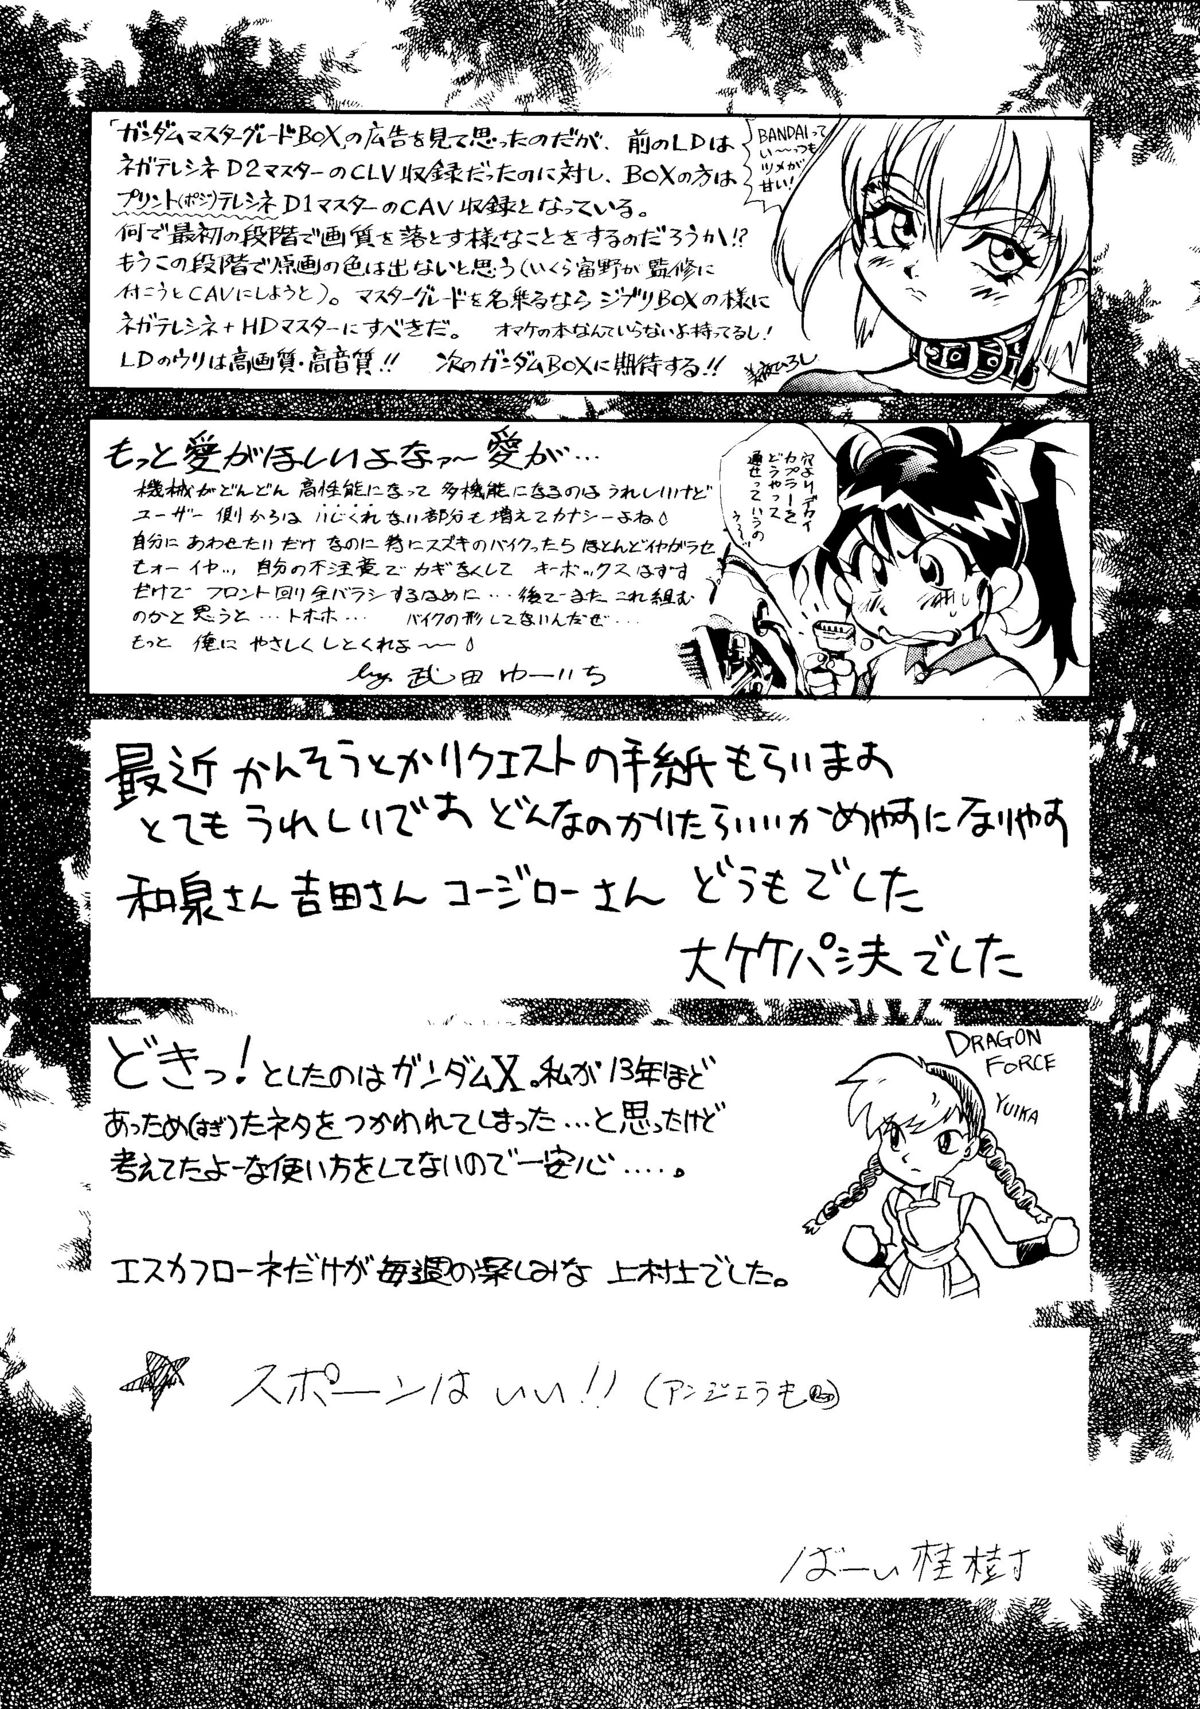 「ガンダムマスターグレードBOX」の広告を見て思ったのだが、前のLDは
ネガテレシネD2マスターのCLV収録だったのに対し、BOXの方は
プリント(ポジ)テレシネD1マスターのCAV収録となっている。
何で最初の段階で画質を落とす様なことをするのだろうか!?
もうこの段階で原画の色は出ないと思う(いくら富野が監修に
付こうとCAVにしようと)。マスターグレードを名乗るならジブリBOXの様に
ネガテレシネ+HDマスターにすべきだ。 オマケの本なんていらないよ持ってるし!
LDのウリは高画質・高音質!! 次のガンダムBOXに期待する!!
BANDAIって
い〜っつも
ツメが
甘い!
もっと愛がほしいよなァ〜愛が…
機械がどんどん高性能になって多機能になるのはうれしいけど
ユーザー側からはいじくれない部分も増えてカナシーよね
自分にあわせたいだけなのに特にスズキのバイクったらほとんどイヤがラセ
もォーイヤッ、自分の不注意でカギなくしてキーボックスはずす
だけでフロント回り全バラシするはめに…後でまたこれ組む
のかと思うと…トホホ… バイクの形してないんだぜ…
もっと俺にやさしくしとくれよ〜〜
by 武田ゆーいち
穴よりデカイ
カプラーを
どうやって
通せっていうの
う〜
最近かんそうとかリクエストの手紙もらいます
とてもうれしいです どんなのかいたらいいかめやすになりやす
和泉さん吉田さんコージローさん どうもでした
大ケケパシ夫でした
どきっ!としたのはガンダムX。私が13年ほど
あっため(すぎ)たネタをつかわれてしまった…と思ったけど
考えてたよーな使い方をしてないので一安心……。
エスカフローネだけが毎週の楽しみな 上村上でした。
DRAGON
FORCE
YUIKA
スポーンはいい!!(アンジェラも)
ばーい桂樹